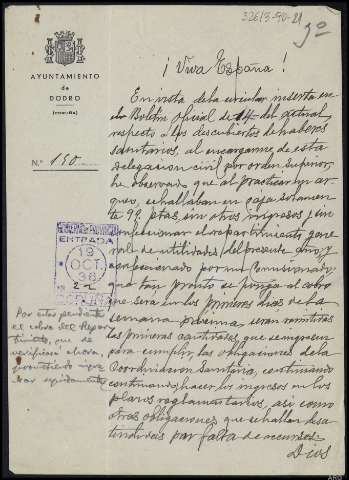 32613-90-21
3º
AYUNTAMIENTO
de
DODRO
(CORUÑA)
N.º 150
¡Viva España!
En vista de la circular inserta en
el Boletín Oficial de 14 del actual,
respecto a los descubiertos de haberes
sanitarios, al encargarme de esta
delegación civil por orden superior,
he observado que al practicar un ar-
queo, se hallaban en caja solamen-
te 99 ptas, sin otros ingresos, sin
confeccionar el repartimiento gene-
ral de utilidades del presente año, y
confeccionado por mi Comisionado,
que tan pronto se ponga al cobro
que será en los primeros días de la
semana próxima, serán remitidas
las primeras cantidades que ingresen
para cumplir las obligaciones de la
Coordinación Sanitaria, continuando
haciendo los ingresos en los
plazos reglamentarios, así como
otras obligaciones que se hallan desa-
tendidas por falta de recursos.
Dios
ENTRADA
19
OCT.
36
CORUÑA
Por estar pendiente
el cobro del Repar-
timiento, que se
verificará ahora,